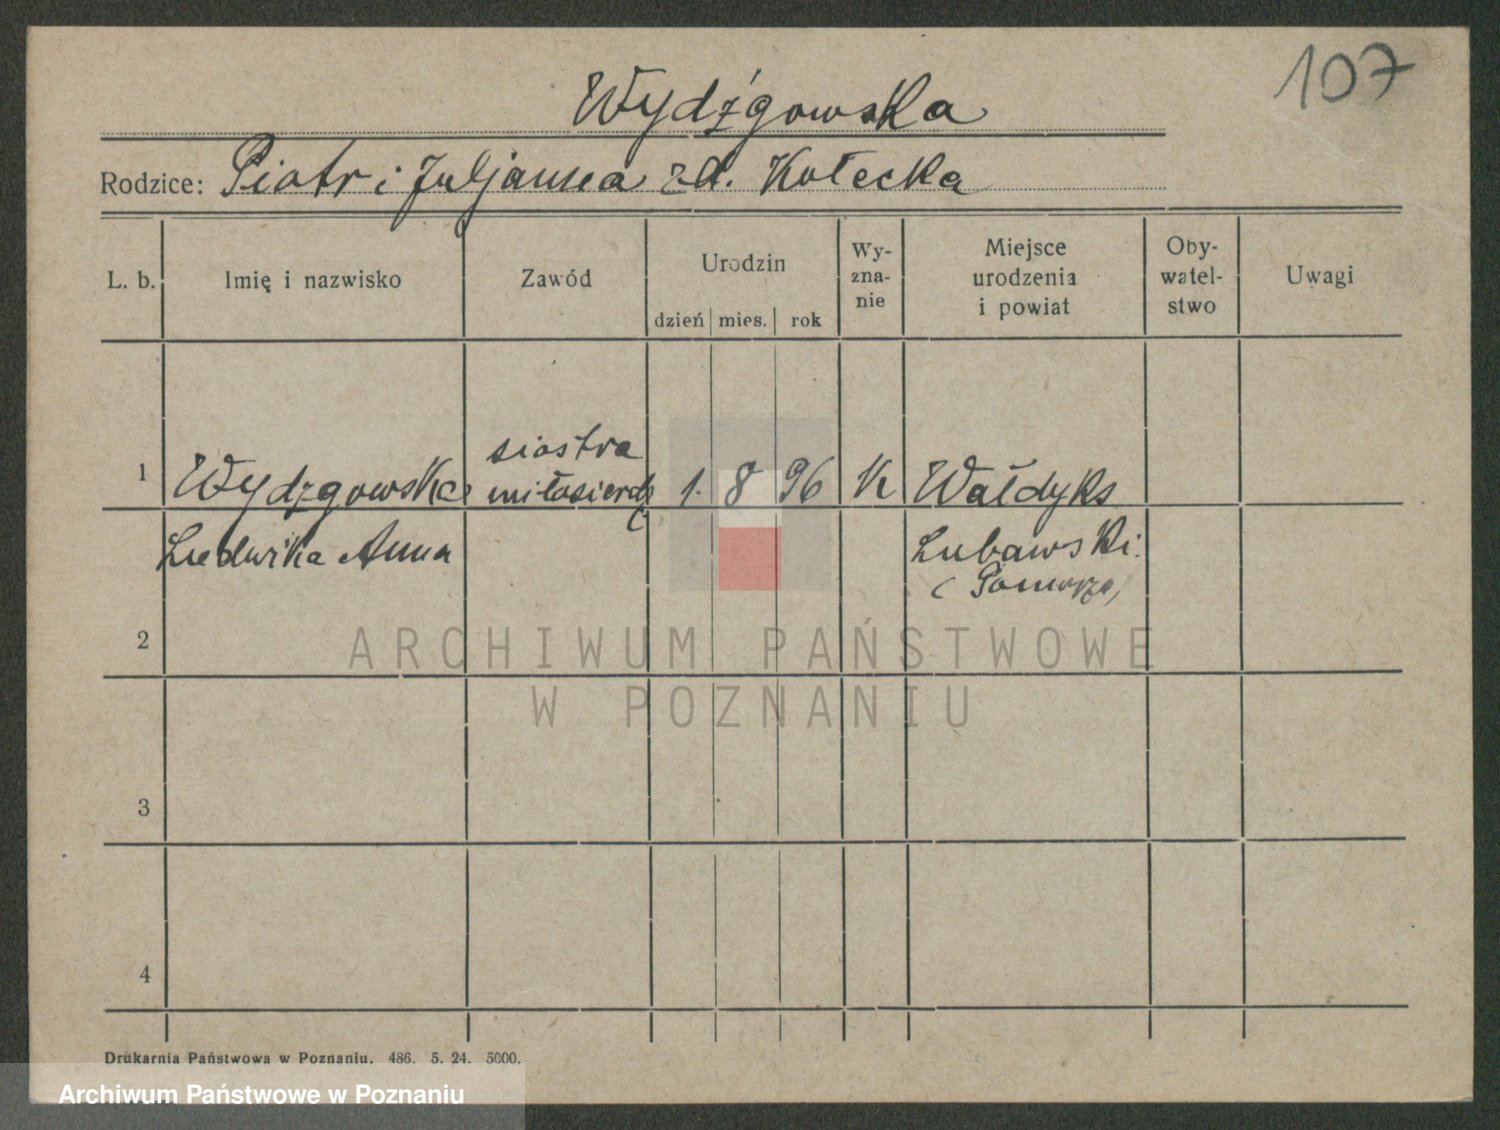 107
Wydźgowska
Rodzice: Piotr i Juljanna zd. Kołecka
L. b. Imię i nazwisko Zawód Urodzin dzień mies. rok Wy-zna-nie Miejsce urodzenia i powiat Oby-watel-stwo Uwagi
siostra
1 Wydzgowska miłosierdz 1. 8 96 K Wałdyks
Ludwika Anna Lubawski.
(Pomorze)
2
3
4
Drukarnia Państwowa w Poznaniu. 486. 5. 24. 5000.
ARCHIWUM PAŃSTWOWE
W POZNANIU
Archiwum Państwowe w Poznaniu